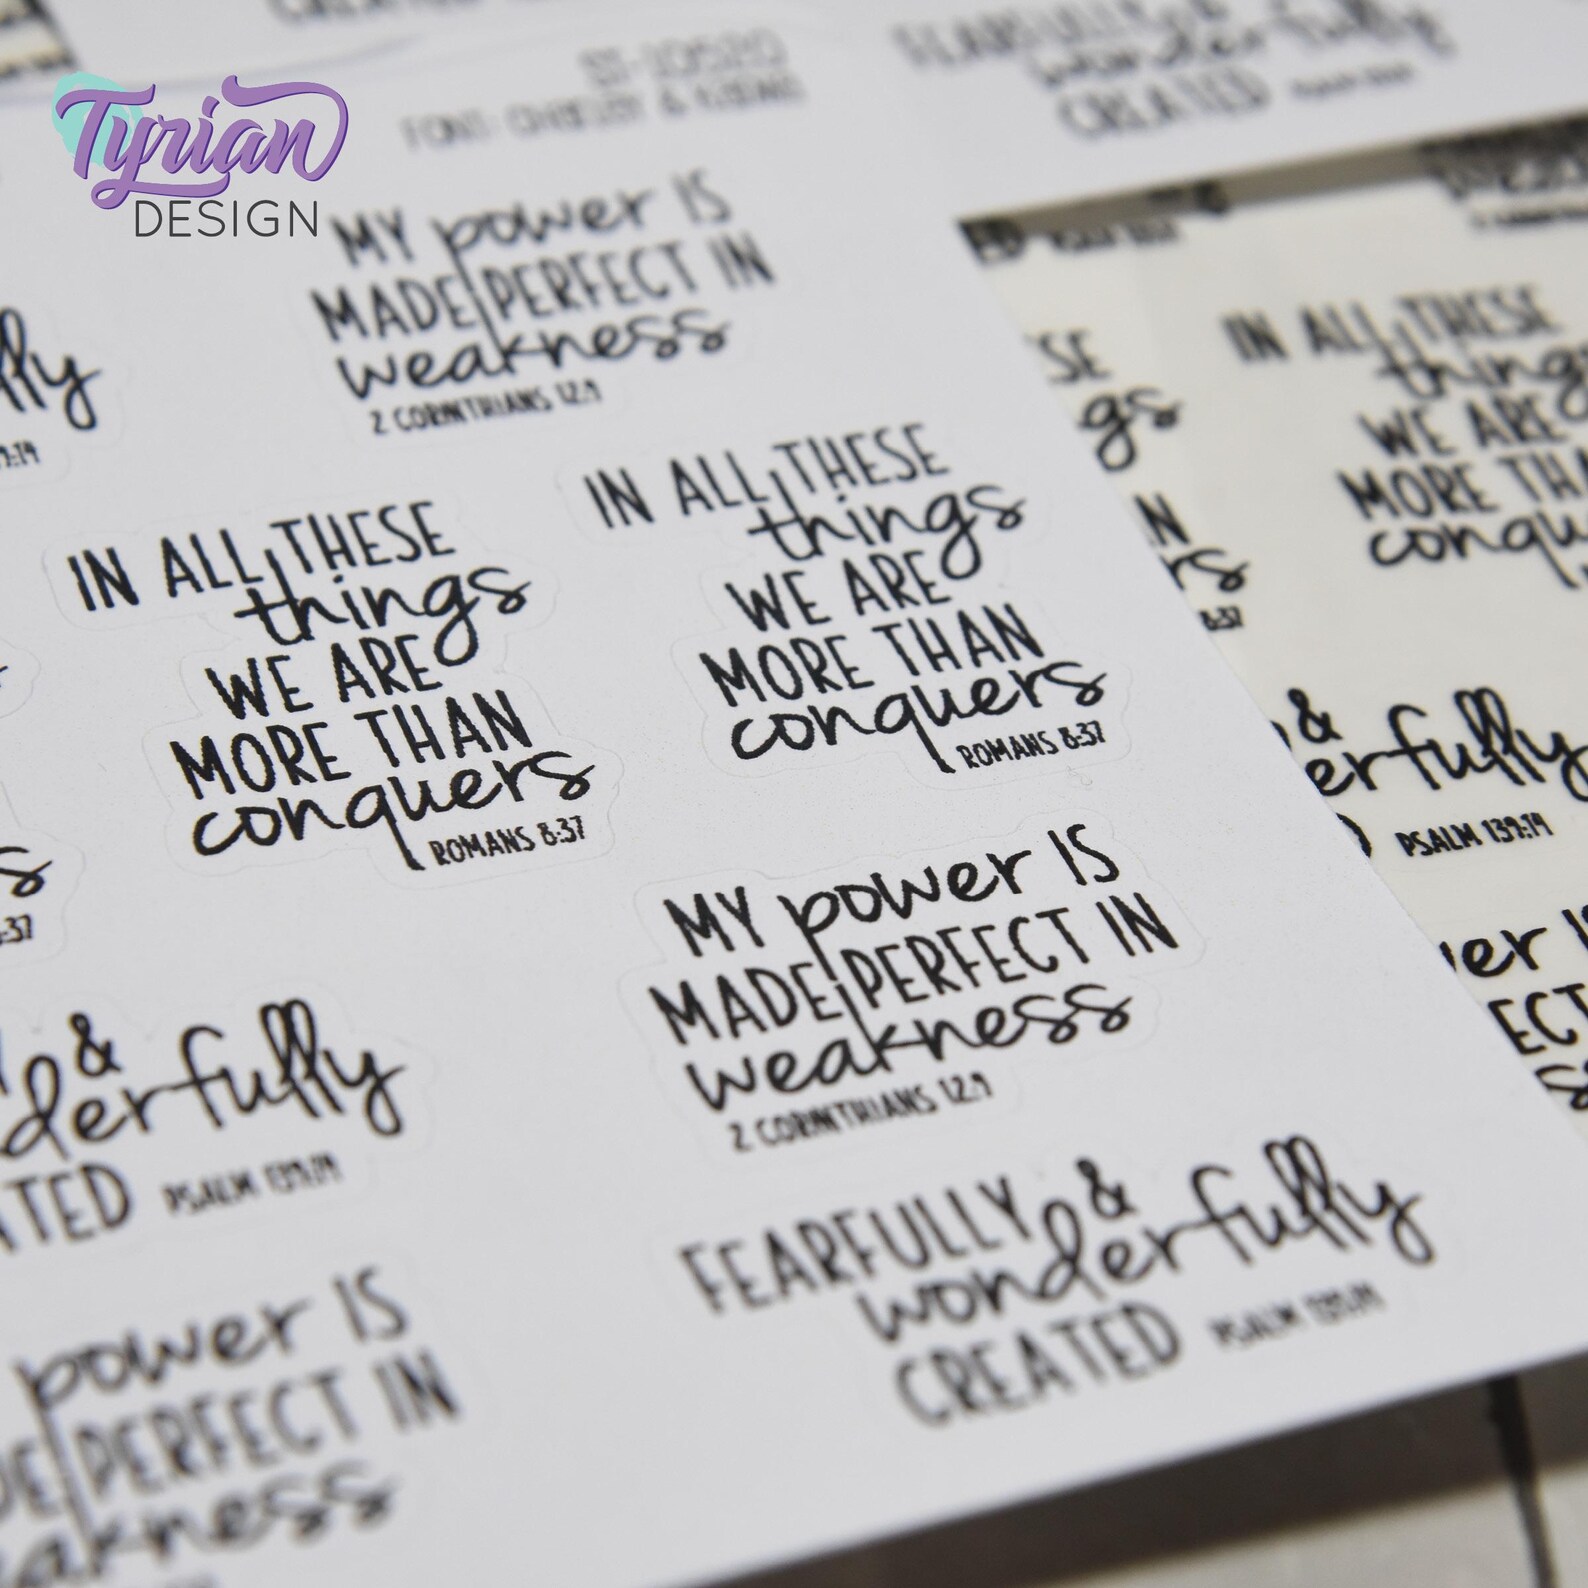 Tyrian
DESIGN
FEARFULLY &
wonderfully
CREATED
MY power IS
MADE PERFECT IN
weakness
2 CORINTHIANS 12:9
IN ALL THESE
things
WE ARE
MORE THAN
conquers
ROMANS 8:37
IN ALL THESE
things
WE ARE
MORE THAN
conquers
ROMANS 8:37
IN ALL THESE
things
WE ARE
MORE THA
conqu
:37
8:37
erfully
PSALM 139:14
MY power IS
MADE PERFECT IN
weakness
2 CORINTHIANS 12:9
&
derfully
TED PSALM 139:14
FEARFULLY &
wonderfully
CREATED PSALM 139:14
power IS
DE PERFECT IN
eakness